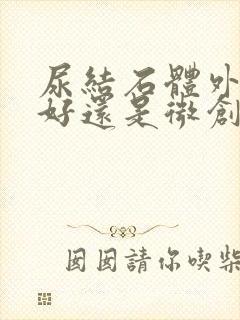 尿結石體外
好還是微創
囡囡請你喫柴